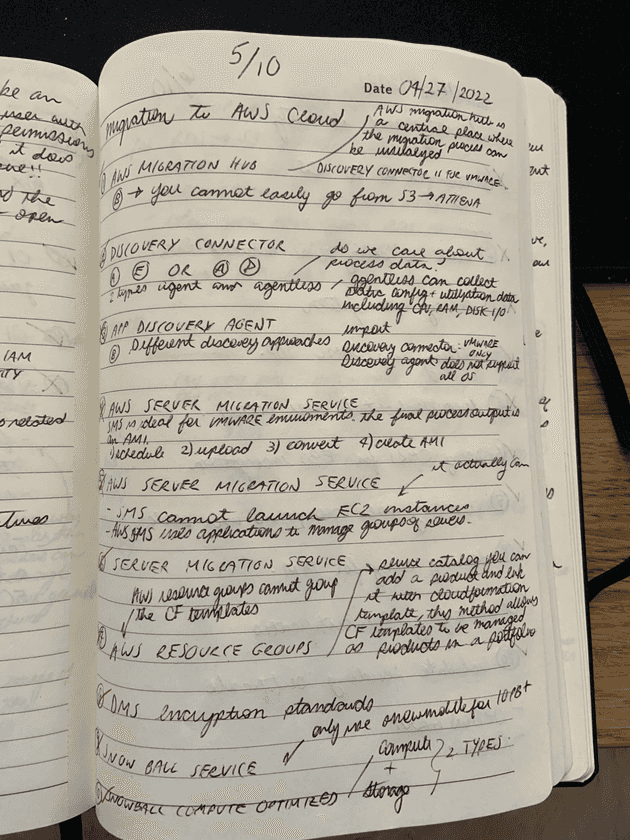 be an
user with
permissions
it does
the
open
IAM
related
5/10
Date 04/27/2022
Migration to AWS Cloud
AWS migration hub is
a central place where
the migration process can
be visualized
AWS MIGRATION HUB
DISCOVERY CONNECTOR IS FOR VMWARE
(B) → you cannot easily go from S3 → ATHENA
DISCOVERY CONNECTOR
do we care about
process data?
(A) (E) OR (A) (D)
2 types agent and agentless
agentless can collect
static config + utilization data
including CPU, RAM, DISK I/O
APP DISCOVERY AGENT
(B) Different discovery approaches
import
Discovery connector - VMWARE
ONLY
Discovery agent does not support
all OS
AWS SERVER MIGRATION SERVICE
SMS is ideal for VMWARE enviroments. the final process output is
an AMI.
1) schedule 2) upload 3) convert 4) create AMI
it actually can
AWS SERVER MIGRATION SERVICE
- SMS cannot launch EC2 instances
- AWS SMS uses applications to manage groups of servers.
SERVER MIGRATION SERVICE
AWS resource groups cannot group
the CF templates
→ service catalog you can
add a product and link
it with cloudformation
template, this method allows
CF templates to be managed
as products in a portfolio
AWS RESOURCE GROUPS
DMS encryption standards
only use snowmobile for 10PB+
SNOW BALL SERVICE
compute
+
storage
2 TYPES
SNOWBALL COMPUTE OPTIMIZED